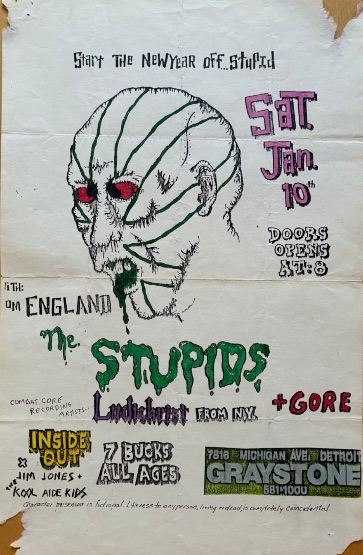 Start The New Year off...Stupid
Sat.
Jan.
10th
DOORS
OPENS
AT:8
ITH:
OM ENGLAND
The STUPIDS
COMBAT CORE
RECORDING
ARTISTS..
Ludichrist FROM N.Y.
+GORE
INSIDE
OUT
&
JIM JONES +
THE KOOL AIDE KIDS
7 BUCKS
ALL AGES
7618 MICHIGAN AVE. DETROIT
GRAYSTONE
581-1000
Character Depicted is fictional. Likeness to any person, living or dead, is completely coincidental.